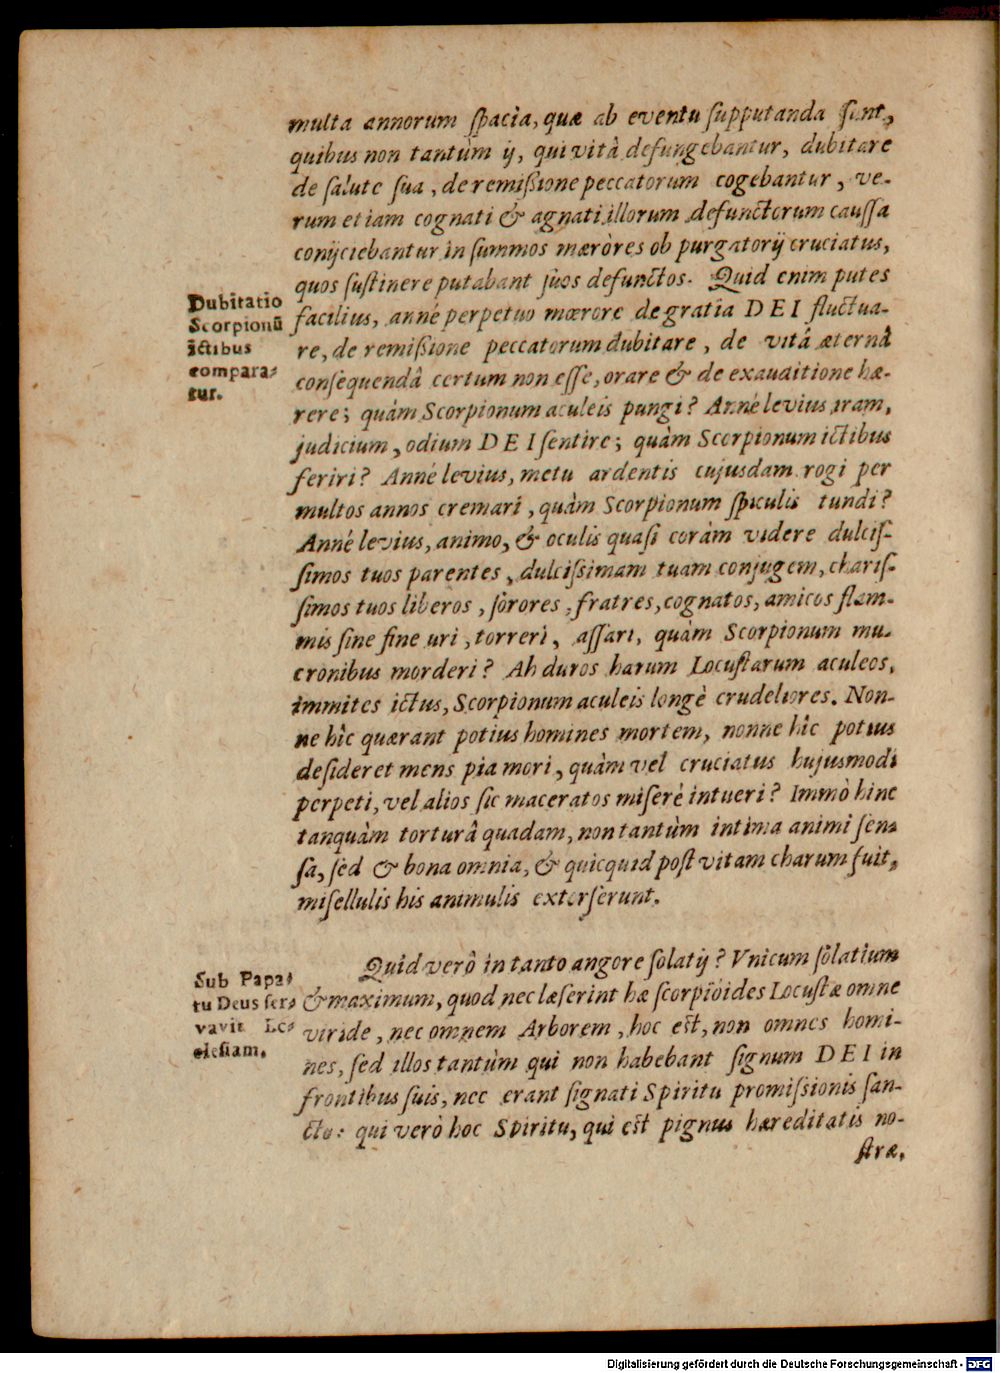 multa annorum ſpacia, quæ ab eventu ſupputanda ſunt,
quibus non tantùm ij, qui vitâ defungebantur, dubitare
de ſalute ſua, de remiſsione peccatorum cogebantur, ve-
rum etiam cognati & agnati illorum defunctorum cauſſa
conijciebantur in ſummos mærores ob purgatorij cruciatus,
quos ſuſtinere putabant ſuos defunctos. Quid enim putes
facilius, anné perpetuo mœrore de gratia DEI fluctua-
re, de remiſsione peccatorum dubitare, de vitâ æternâ
conſequendâ certum non eſſe, orare & de exauditione hæ-
rere; quàm Scorpionum aculeis pungi? Anné levius iram,
judicium, odium DEI ſentire; quàm Scorpionum ictibus
feriri? Anné levius, metu ardentis cujusdam rogi per
multos annos cremari, quàm Scorpionum ſpiculis tundi?
Anné levius, animo, & oculis quaſi coràm videre dulciſ-
ſimos tuos parentes, dulciſsimam tuam conjugem, chariſ-
ſimos tuos liberos, ſorores, fratres, cognatos, amicos flam-
mis ſine fine uri, torreri, aſſari, quàm Scorpionum mu-
cronibus morderi? Ah duros harum Locuſtarum aculeos,
immites ictus, Scorpionum aculeis longè crudeliores. Non-
ne hîc quærant potius homines mortem, nonne hîc potius
deſideret mens pia mori, quàm vel cruciatus hujusmodi
perpeti, vel alios ſic maceratos miſerè intueri? Immò hinc
tanquàm torturâ quadam, non tantùm intima animi ſen-
ſa, ſed & bona omnia, & quicquid poſt vitam charum fuit,
miſellulis his animulis extorſerunt.
Dubitatio
Scorpionū
ictibus
compara-
tur.
Quid verò in tanto angore ſolatij? Vnicum ſolatium
& maximum, quod nec læſerint hæ ſcorpioides Locuſtæ omne
viride, nec omnem Arborem, hoc eſt, non omnes homi-
nes, ſed illos tantùm qui non habebant ſignum DEI in
frontibus ſuis, nec erant ſignati Spiritu promiſsionis ſan-
cto: qui verò hoc Spiritu, qui eſt pignus hæreditatis no-
ſtræ,
Sub Papa-
tu Deus ſer-
vavit Ec-
cleſiam.
Digitalisierung gefördert durch die Deutsche Forschungsgemeinschaft - DFG